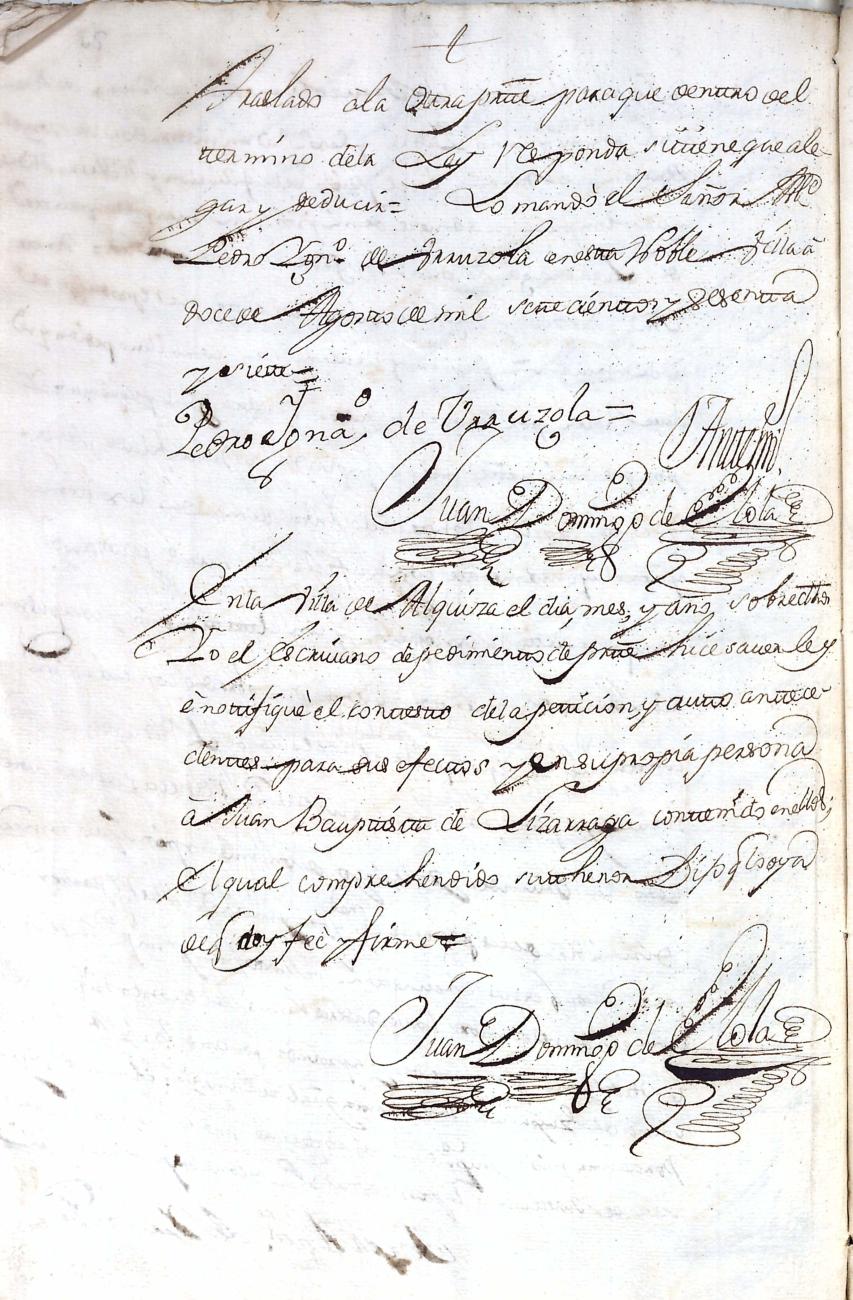 Traslado a la Otra prte para que dentro del
termino de la Ley Responda si tiene que ale-
gar y deducir= Lo mandò el Señor Allc
Pedro Ygno. de Urruzola en esta Noble Villa à
doce de Agosto de mil setecientos y sesenta
y siete=
Pedro Igna.o de Urruzola=
Ante mi
Juan Domingo de Olola
En la Villa de Alquiza el dia, mes, y año, sobredhos
Yo el Escrivano de pedimiento de prte hice saver ley
è notifiquè el contesto de la peticion, y auto antece-
dentes para sus efectos y en su propia persona
à Juan Bauptista de Lizarraga contenido en ellos;
El qual comprehendido su thenor Dijo q lo oya
de q doy feè y firme=
Juan Domingo de Olola